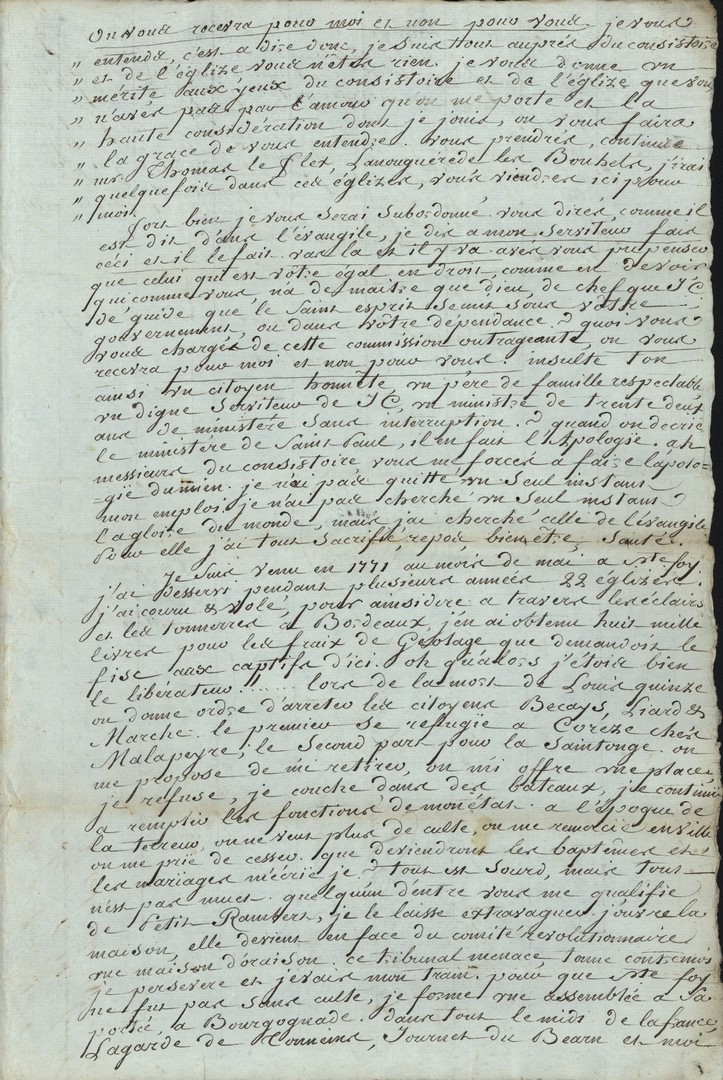 On vous recevra pour moi et non pour vous. je vous
" entends, c'est a dire donc, je suis tout auprès du consistoire
" et de l'églize vous n'êtes rien. je vous donne un
" mérite aux yeux du consistoire et de l'églize que vous
" n'avés pas par l'amour qu'on me porte et la
" haute considération dont je jouis, on vous faira
" la grace de vous entendre. vous prendrés, continue
" mr. Thomas le Flex, Lanouguerede les Bouhets, j'irai
" quelque fois dans ces églizes, vous viendres ici pour
" moi.
fort bien je vous serai subordonné, vous dirés, comme il
est dit dans l'évangile, je dis a mon Serviteur fais
ceci et il le fait. vas la et il y va. aves vous pu penser
que celui qui est vôtre égal en droit, comme en devoir
qui comme vous n'a de maître que dieu, de chef que J C,
de guide que le Saint esprit se mit sous vôtre
gouvernement, ou dans vôtre dépendance? quoi vous
vous chargés de cette commission outrageante, on vous
recevra pour moi et non pour vous! insulte t'on
ainsi un citoyen honnête, un père de famille respectable
un digne Serviteur de J C, un ministre de trente deux
ans de ministère sans interruption? quand on décrie
le ministère de Saint Paul, il en fait l'Apologie. ah
messieurs du consistoire vous me forcés a faire l'apolo=
=gie du mien. je n'ai pas quitté un seul instant
mon emploi. je n'ai pas cherché un seul instant
la gloire du monde, mais j'ai cherché celle de l'évangile
Pour elle j'ai tout sacrifié repos, bien être, santé.
Je suis venu en 1771 au mois de mai, a Ste foy
j'ai desservi pendant plusieurs années 22 églizes.
j'ai couru & volé, pour ainsi dire a travers les éclairs
et les tonnerres à Bordeaux, j'en ai obtenu huit mille
livres pour les fraix de Geolage que demandoit le
fisc aux captifs d'ici. oh qu'alors j'étois bien
le libérateur!! ...... lors de la mort de Louis quinze
on donne ordre d'arreter les citoyens Becays, Liard &
Marche. le premier se refugie a Coreze chés
Malapeyre, le second part pour la Saintonge. on
me propose de m'i retirer, on m'i offre une place
je refuse, je couche dans des bateaux, je continue
a remplir les fonctions de mon état. a l'époque de
la terreur, on ne veut plus de culte, on me remercie en ville
on me prie de cesser. que deviendront les baptêmes et
les mariages m'écrié je? tout est sourd, mais tout
n'est pas muet. quelqu'un d'entre vous me qualifie
de Petit Rambert, je le laisse extravaguer. j'ouvre la
maison, elle devient en face du comité révolutionnaire
une maison d'oraison. ce tribunal menace, tonne contre moi
je persevere et je vais mon train. pour que Ste foy
ne fut pas sans culte, je forme une assemblée a Sa
porte, a Bourgognade. dans tout le midi de la france
Lagarde de Tonneins, Journet du Bearn et moi